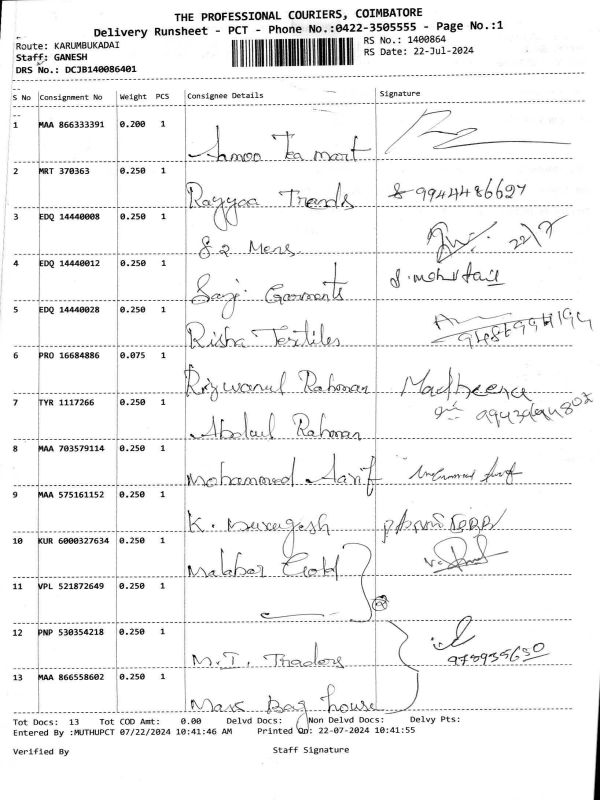 THE PROFESSIONAL COURIERS, COIMBATORE
Delivery Runsheet - PCT - Phone No.:0422-3505555 - Page No.:1
Route: KARUMBUKADAI RS No.: 1400864
Staff: GANESH RS Date: 22-Jul-2024
DRS No.: DCJB140086401
S No Consignment No Weight PCS Consignee Details Signature
1 MAA 866333391 0.200 1 Tea mart
2 MRT 370363 0.250 1 Rayyaa Trends 9944486627
3 EDQ 14440008 0.250 1 S2 Mens 22/7
4 EDQ 14440012 0.250 1 Garments
5 EDQ 14440028 0.250 1 Risha Textiles
6 PRO 16684886 0.075 1 Rizwanul Rahman
7 TYR 1117266 0.250 1 Rahman
8 MAA 703579114 0.250 1 Mohammed Aarif
9 MAA 575161152 0.250 1 K. Murugesh
10 KUR 6000327634 0.250 1 Malabar Gold
11 VPL 521872649 0.250 1
12 PNP 530354218 0.250 1 M.I. Traders
13 MAA 866558602 0.250 1 Mars Bag house
Tot Docs: 13 Tot COD Amt: 0.00 Delvd Docs: Non Delvd Docs: Delvy Pts:
Entered By :MUTHUPCT 07/22/2024 10:41:46 AM Printed On: 22-07-2024 10:41:55
Verified By Staff Signature